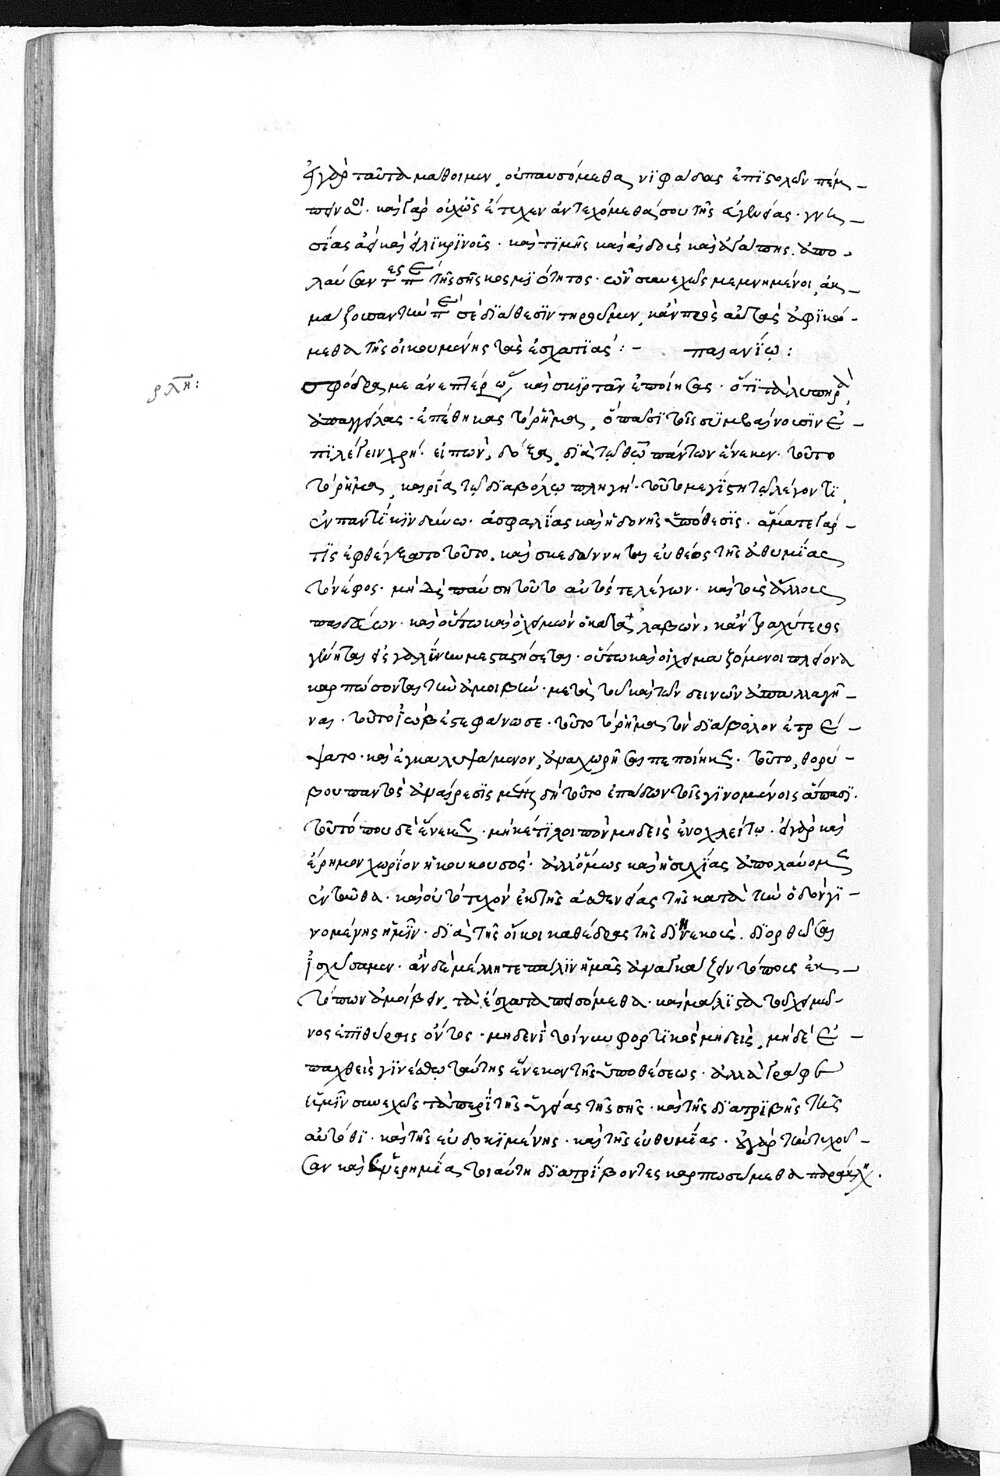 εἰ γὰρ ταῦτα μάθοιμεν, οὐ παυσόμεθα νιφάδας ἐπιστολῶν πέμ–
ποντες. καὶ γὰρ οὐχ ὡς ἔτυχεν ἀντεχόμεθά σου τῆς εὐγενείας. γνη–
σίας ἀεὶ καὶ εἰλικρινοῦς. καὶ τιμῆς καὶ αἰδοῦς καὶ ἀγάπης ἀπο–
λαύσαντες παρὰ τῆς σῆς κοσμιότητος. ὧν συνεχῶς μεμνημένοι, ἀκ–
μάζουσαν τὴν περὶ σὲ διάθεσιν τηροῦμεν, κἂν πρὸς αὐτὰς ἀφικώ–
μεθα τῆς οἰκουμένης τὰς ἐσχατιάς:– παιανίῳ:
ρλη: σφόδρα με ἀνεπτέρωσας καὶ σκιρτᾶν ἐποίησας. ὅτι τὰ λυπηρὰ
ἀπαγγείλας. ἐπέθηκας τὸ ῥῆμα, ὃ πᾶσι τοῖς συμβαίνουσιν ἐ–
πιλέγειν χρή. εἰπών, δόξα διὰ τῷ θεῷ πάντων ἕνεκεν. τοῦτο
τὸ ῥῆμα, καιρία τῷ διαβόλῳ πληγή. τοῦτο μεγίστη τῷ λέγοντι,
ἐν παντὶ κινδύνῳ. ἀσφαλείας καὶ ἡδονῆς ὑπόθεσις. ἅμα τε γάρ–
τις ἐφθέγξατο τοῦτο, καὶ σκεδάννυται εὐθέως τῆς ἀθυμίας
τὸ νέφος. μὴ δὴ παύσῃ τοῦτο αὐτός τε λέγων. καὶ τοὺς ἄλλους
παιδεύων. καὶ οὕτω καὶ ὁ χειμὼν ὁ καταλαβών, κἂν τραχύτερος
γένηται εἰς γαλήνην μεταστήσεται. οὕτω καὶ οἱ χειμαζόμενοι πλείονα
καρπώσονται τὴν ἀμοιβήν. μετὰ τοῦ καὶ τῶν δεινῶν ἀπαλλαγῆ–
ναι. τοῦτο ἰὼβ ἐστεφάνωσε. τοῦτο τὸ ῥῆμα τὸν διάβολον ἐτρέ–
ψατο. καὶ ἐγκαλυψάμενον, ἀναχωρῆσαι πεποίηκε. τοῦτο, θορύ–
βου παντὸς ἀναίρεσις. μένε δὴ τοῦτο ἐπᾴδων τοῖς γινομένοις ἅπασι.
τοῦ τόπου δὲ ἕνεκεν. μηκέτι λοιπὸν μηδεὶς ἐνοχλείτω. εἰ γὰρ καὶ
ἔρημον χωρίον ἡ κουκουσός. ἀλλ' ὅμως καὶ ἡσυχίας ἀπολαύομεν
ἐνταῦθα. καὶ οὐ τὸ τυχὸν ἐκ τῆς ἀσθενείας τῆς κατὰ τὴν ὁδὸν γι–
νομένης ἡμῖν. διὰ τῆς οἴκοι καθέδρας τῆς διηνεκοῦς. διορθῶσαι
ἰσχύσαμεν. ἂν δὲ μέλλητε πάλιν ἡμᾶς ἀναγκάζειν τόπους ἐκ–
τόπων ἀμείβειν, τὰ ἔσχατα πεισόμεθα. καὶ μάλιστα τοῦ χειμῶ–
νος ἐπὶ θύραις ὄντος. μηδενὶ τοίνυν φορτικὸς μηδείς, μηδὲ ἐ–
παχθεὶς γινέσθω ταύτης ἕνεκεν τῆς ὑποθέσεως. ἀλλὰ γράφε
ἡμῖν συνεχῶς τὰ περὶ τῆς ὑγείας τῆς σῆς. καὶ τῆς διατριβῆς τῆς
αὐτόθι. καὶ τῆς εὐδοκιμένης. καὶ τῆς εὐθυμίας. εἰ γὰρ τὴν τυχοῦ–
σαν καὶ ἐν ἐρημίᾳ τοιαύτῃ διατρίβοντες καρπωσώμεθα παράκλησιν.